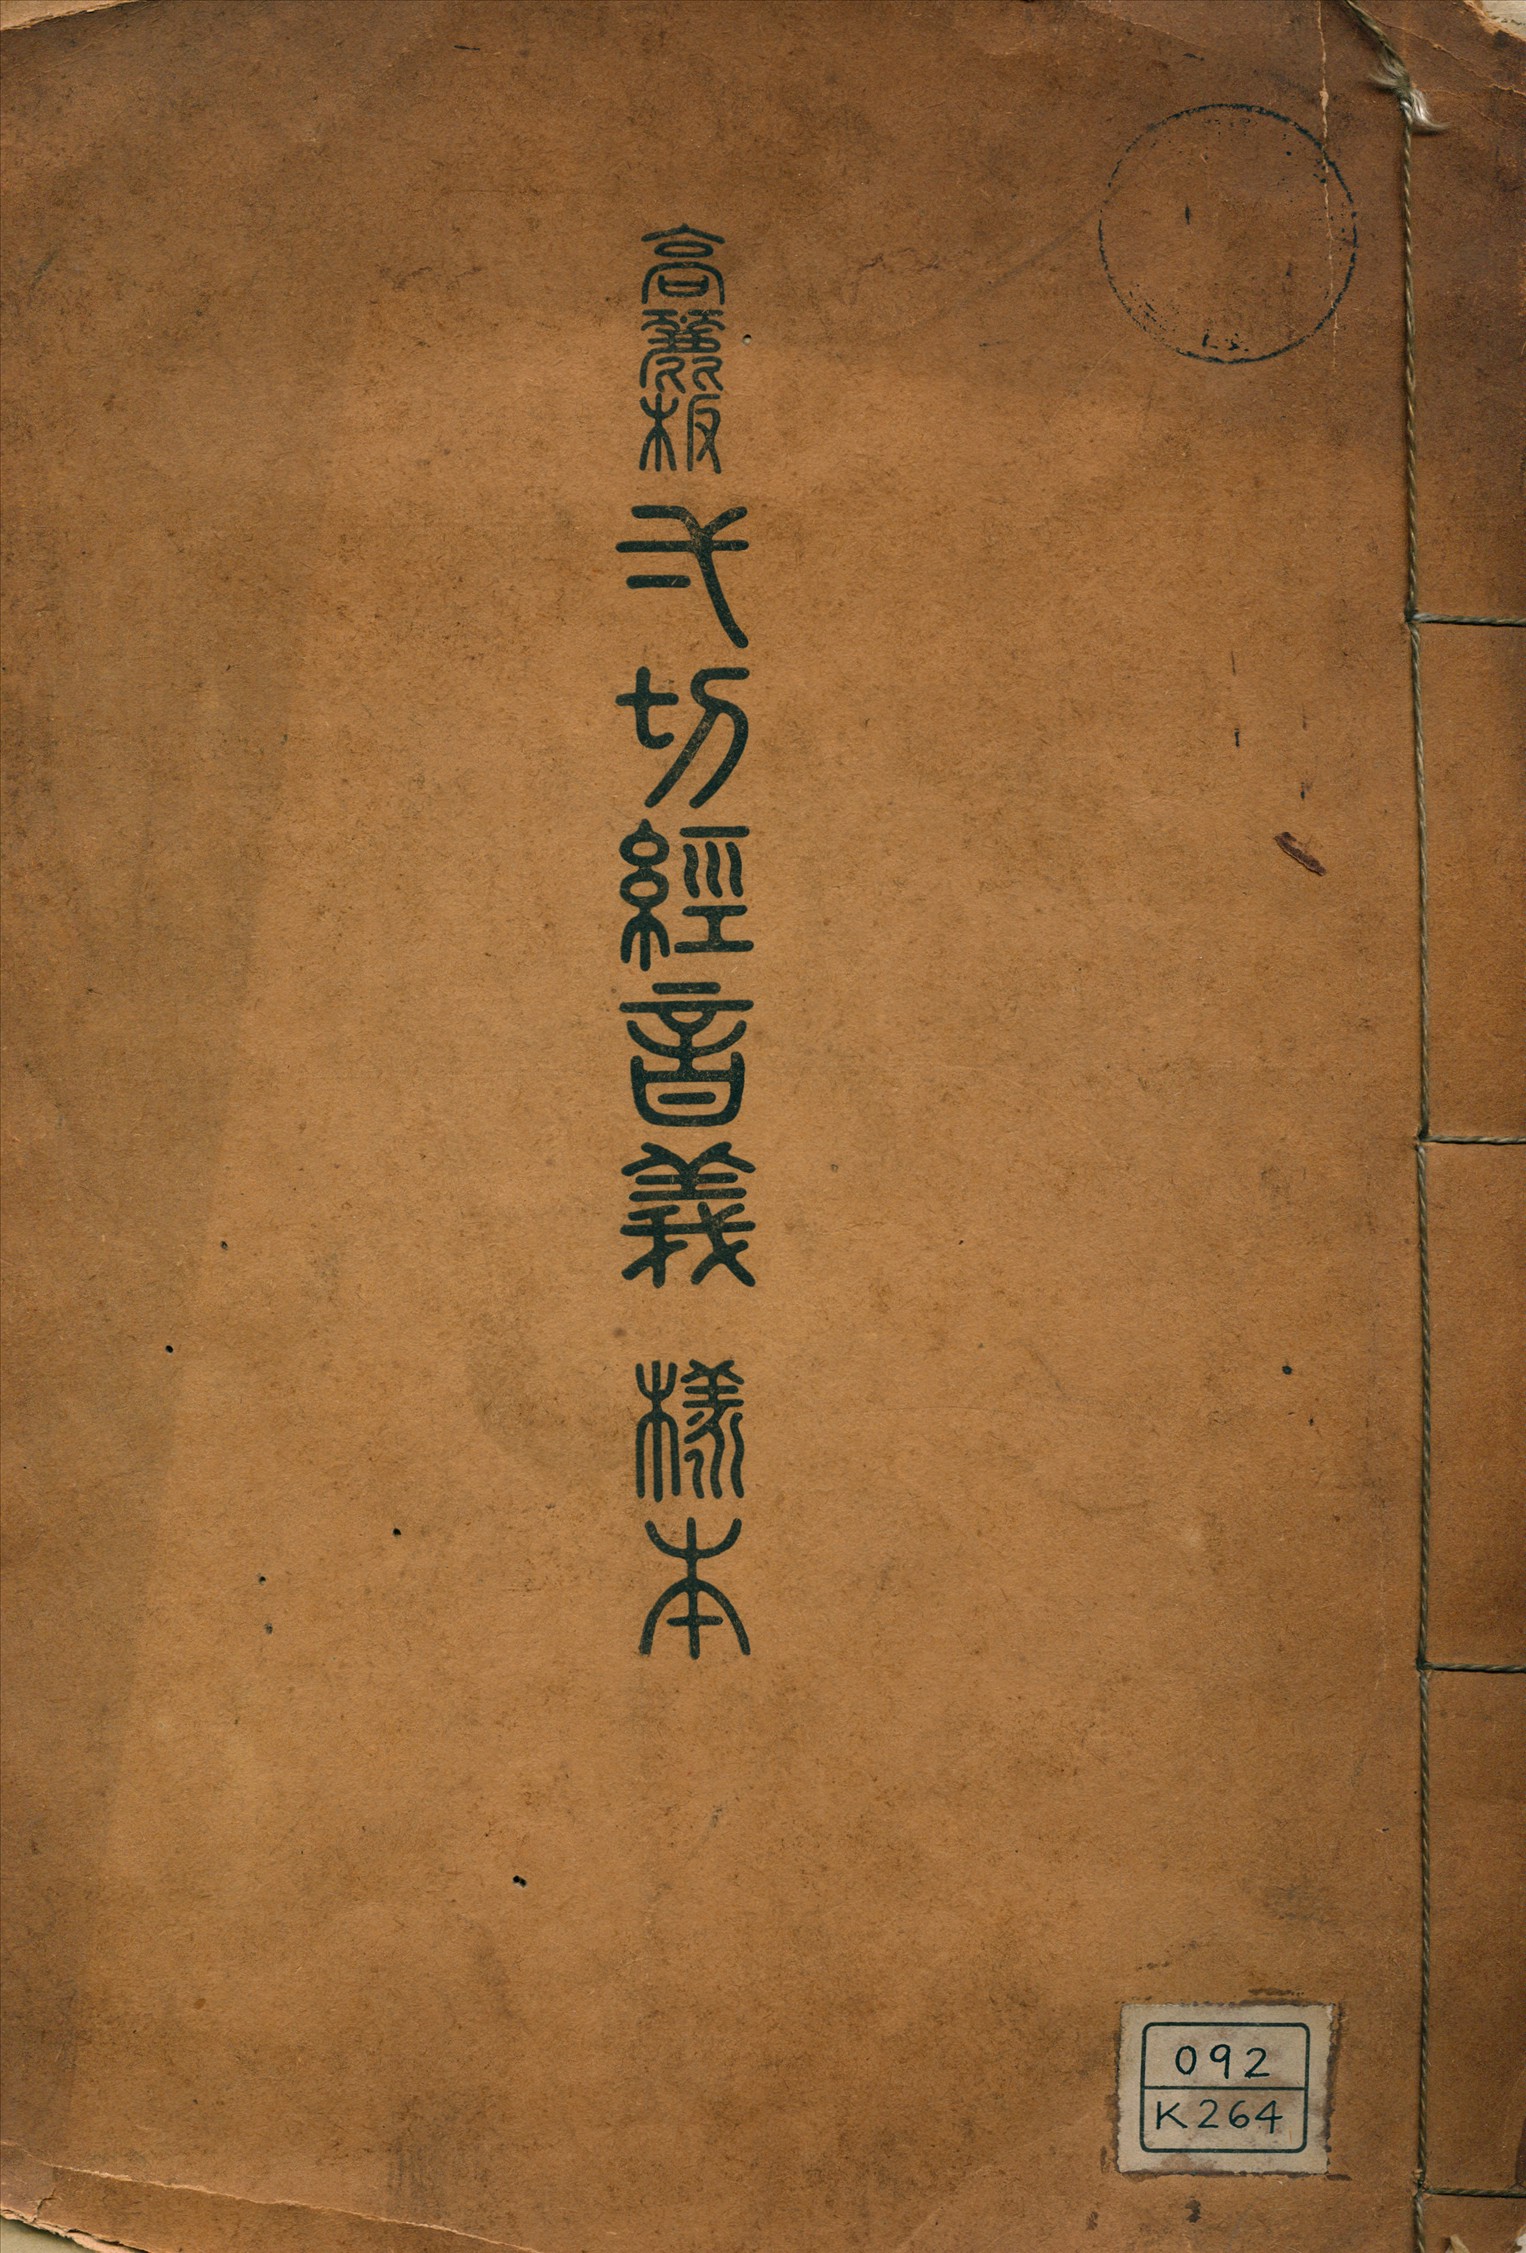 高麗板 弌切經音義 樣本
092
K264